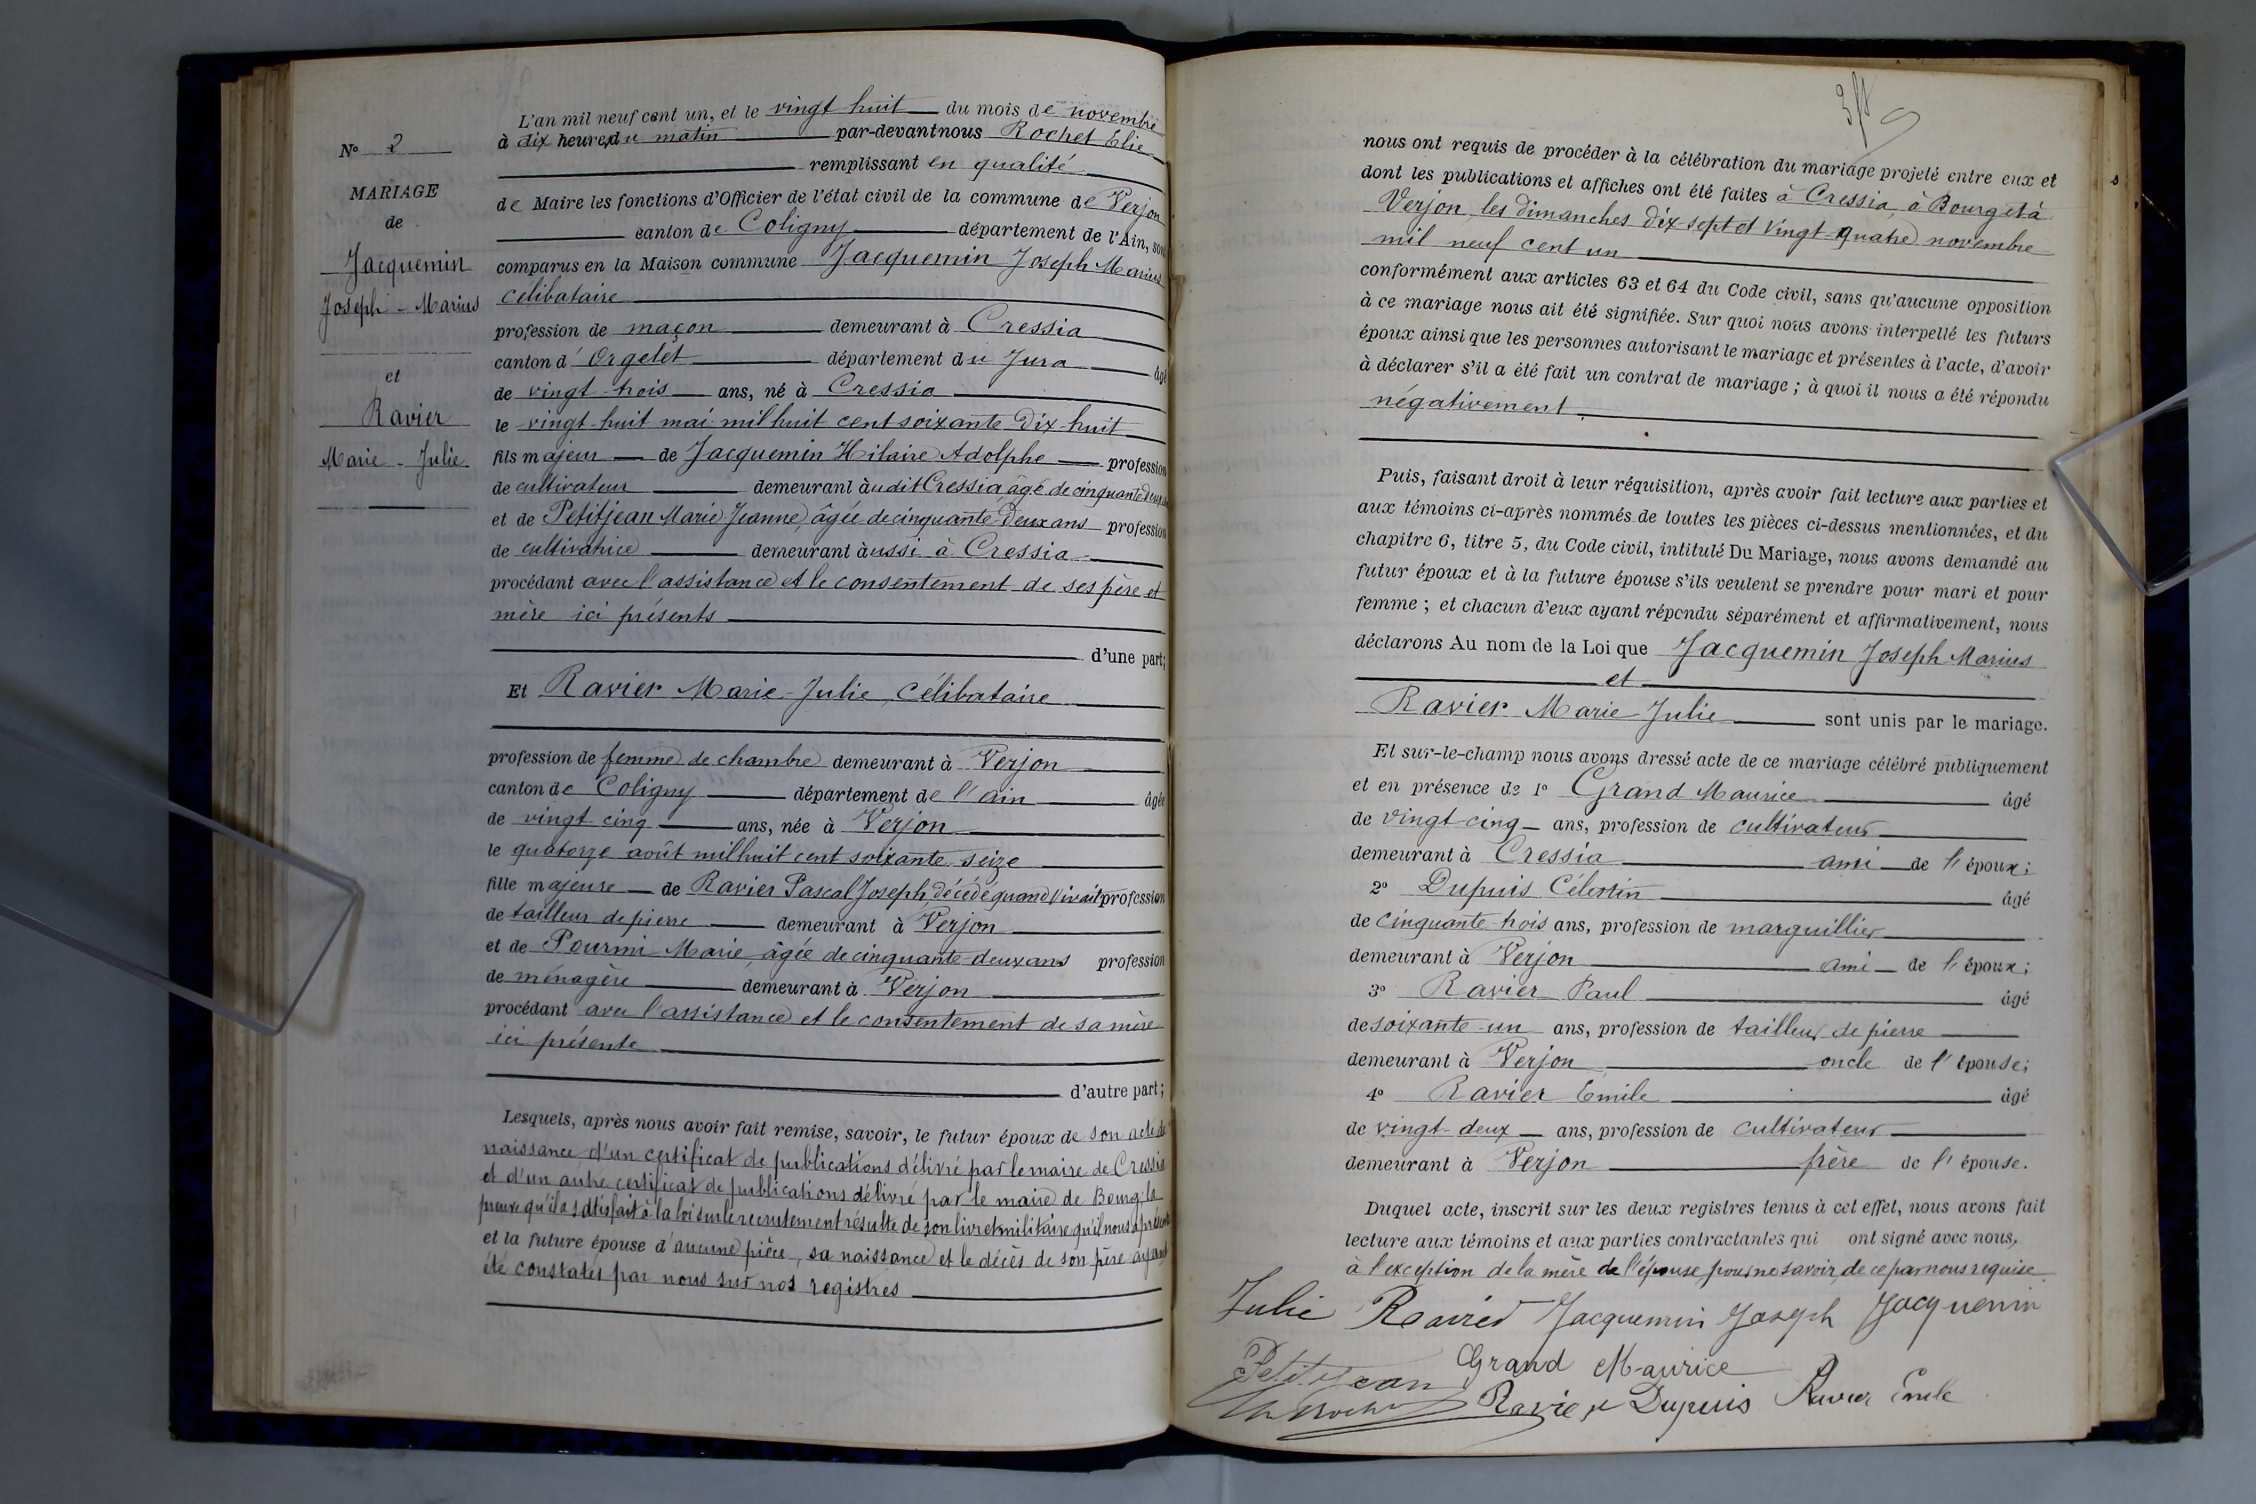 N° 2
MARIAGE
de
Jacquemin
Joseph - Marius
et
Ravier
Marie - Julie
L'an mil neuf cent un, et le vingt huit du mois de novembre
à dix heures du matin par-devant nous Rochet Elie
remplissant en qualité
de Maire les fonctions d'Officier de l'état civil de la commune de Verjon
canton de Coligny département de l'Ain, sont
comparus en la Maison commune Jacquemin Joseph Marius
célibataire
profession de maçon demeurant à Cressia
canton d'Orgelet département du Jura âgé
de vingt trois ans, né à Cressia
le vingt-huit mai mil huit cent soixante dix-huit
fils majeur de Jacquemin Hilaire Adolphe profession
de cultivateur demeurant àudit Cressia, âgé de cinquante deux ans
et de Petitjean Marie Jeanne, âgée de cinquante-deux ans profession
de cultivatrice demeurant àussi à Cressia
procédant avec l'assistance et le consentement de ses père et
mère ici présents
d'une part;
Et Ravier Marie-Julie, célibataire
profession de femme de chambre demeurant à Verjon
canton de Coligny département de l'ain âgée
de vingt cinq ans, née à Verjon
le quatorze août mil huit cent soixante seize
fille majeure de Ravier Pascal Joseph, décédé quand vivait profession
de tailleur de pierre demeurant à Verjon
et de Pourmi Marie, âgée de cinquante-deux ans profession
de ménagère demeurant à Verjon
procédant avec l'assistance et le consentement de sa mère
ici présente
d'autre part;
Lesquels, après nous avoir fait remise, savoir, le futur époux de son acte de
naissance d'un certificat de publications délivré par le maire de Cressia
et d'un autre certificat de publications délivré par le maire de Bourg; la
preuve qu'il a satisfait à la loi sur le recrutement résulte de son livret militaire qu'il nous a présenté
et la future épouse d'aucune pièce, sa naissance et le décès de son père ayant
été constatés par nous sur nos registres
nous ont requis de procéder à la célébration du mariage projeté entre eux et
dont les publications et affiches ont été faites à Cressia, à Bourg et à
Verjon, les dimanches dix sept et vingt-quatre novembre
mil neuf cent un
conformément aux articles 63 et 64 du Code civil, sans qu'aucune opposition
à ce mariage nous ait été signifiée. Sur quoi nous avons interpellé les futurs
époux ainsi que les personnes autorisant le mariage et présentes à l'acte, d'avoir
à déclarer s'il a été fait un contrat de mariage; à quoi il nous a été répondu
négativement.
Puis, faisant droit à leur réquisition, après avoir fait lecture aux parties et
aux témoins ci-après nommés de toutes les pièces ci-dessus mentionnées, et du
chapitre 6, titre 5, du Code civil, intitulé Du Mariage, nous avons demandé au
futur époux et à la future épouse s'ils veulent se prendre pour mari et pour
femme; et chacun d'eux ayant répondu séparément et affirmativement, nous
déclarons Au nom de la Loi que Jacquemin Joseph Marius
et
Ravier Marie Julie sont unis par le mariage.
Et sur-le-champ nous avons dressé acte de ce mariage célébré publiquement
et en présence de 1° Grand Maurice âgé
de vingt-cinq ans, profession de cultivateur
demeurant à Cressia ami de l'époux;
2° Dupuis Célestin âgé
de cinquante-trois ans, profession de marguillier
demeurant à Verjon ami de l'époux;
3° Ravier Paul âgé
de soixante-un ans, profession de tailleur de pierre
demeurant à Verjon oncle de l'épouse;
4° Ravier Emile âgé
de vingt-deux ans, profession de cultivateur
demeurant à Verjon frère de l'épouse.
Duquel acte, inscrit sur les deux registres tenus à cet effet, nous avons fait
lecture aux témoins et aux parties contractantes qui ont signé avec nous,
à l'exception de la mère de l'épouse pour ne savoir, de ce par nous requise.
Julie Ravier Jacquemin Joseph Jacquemin
Petitjean Grand Maurice
Rochet Ravier Dupuis Ravier Emile